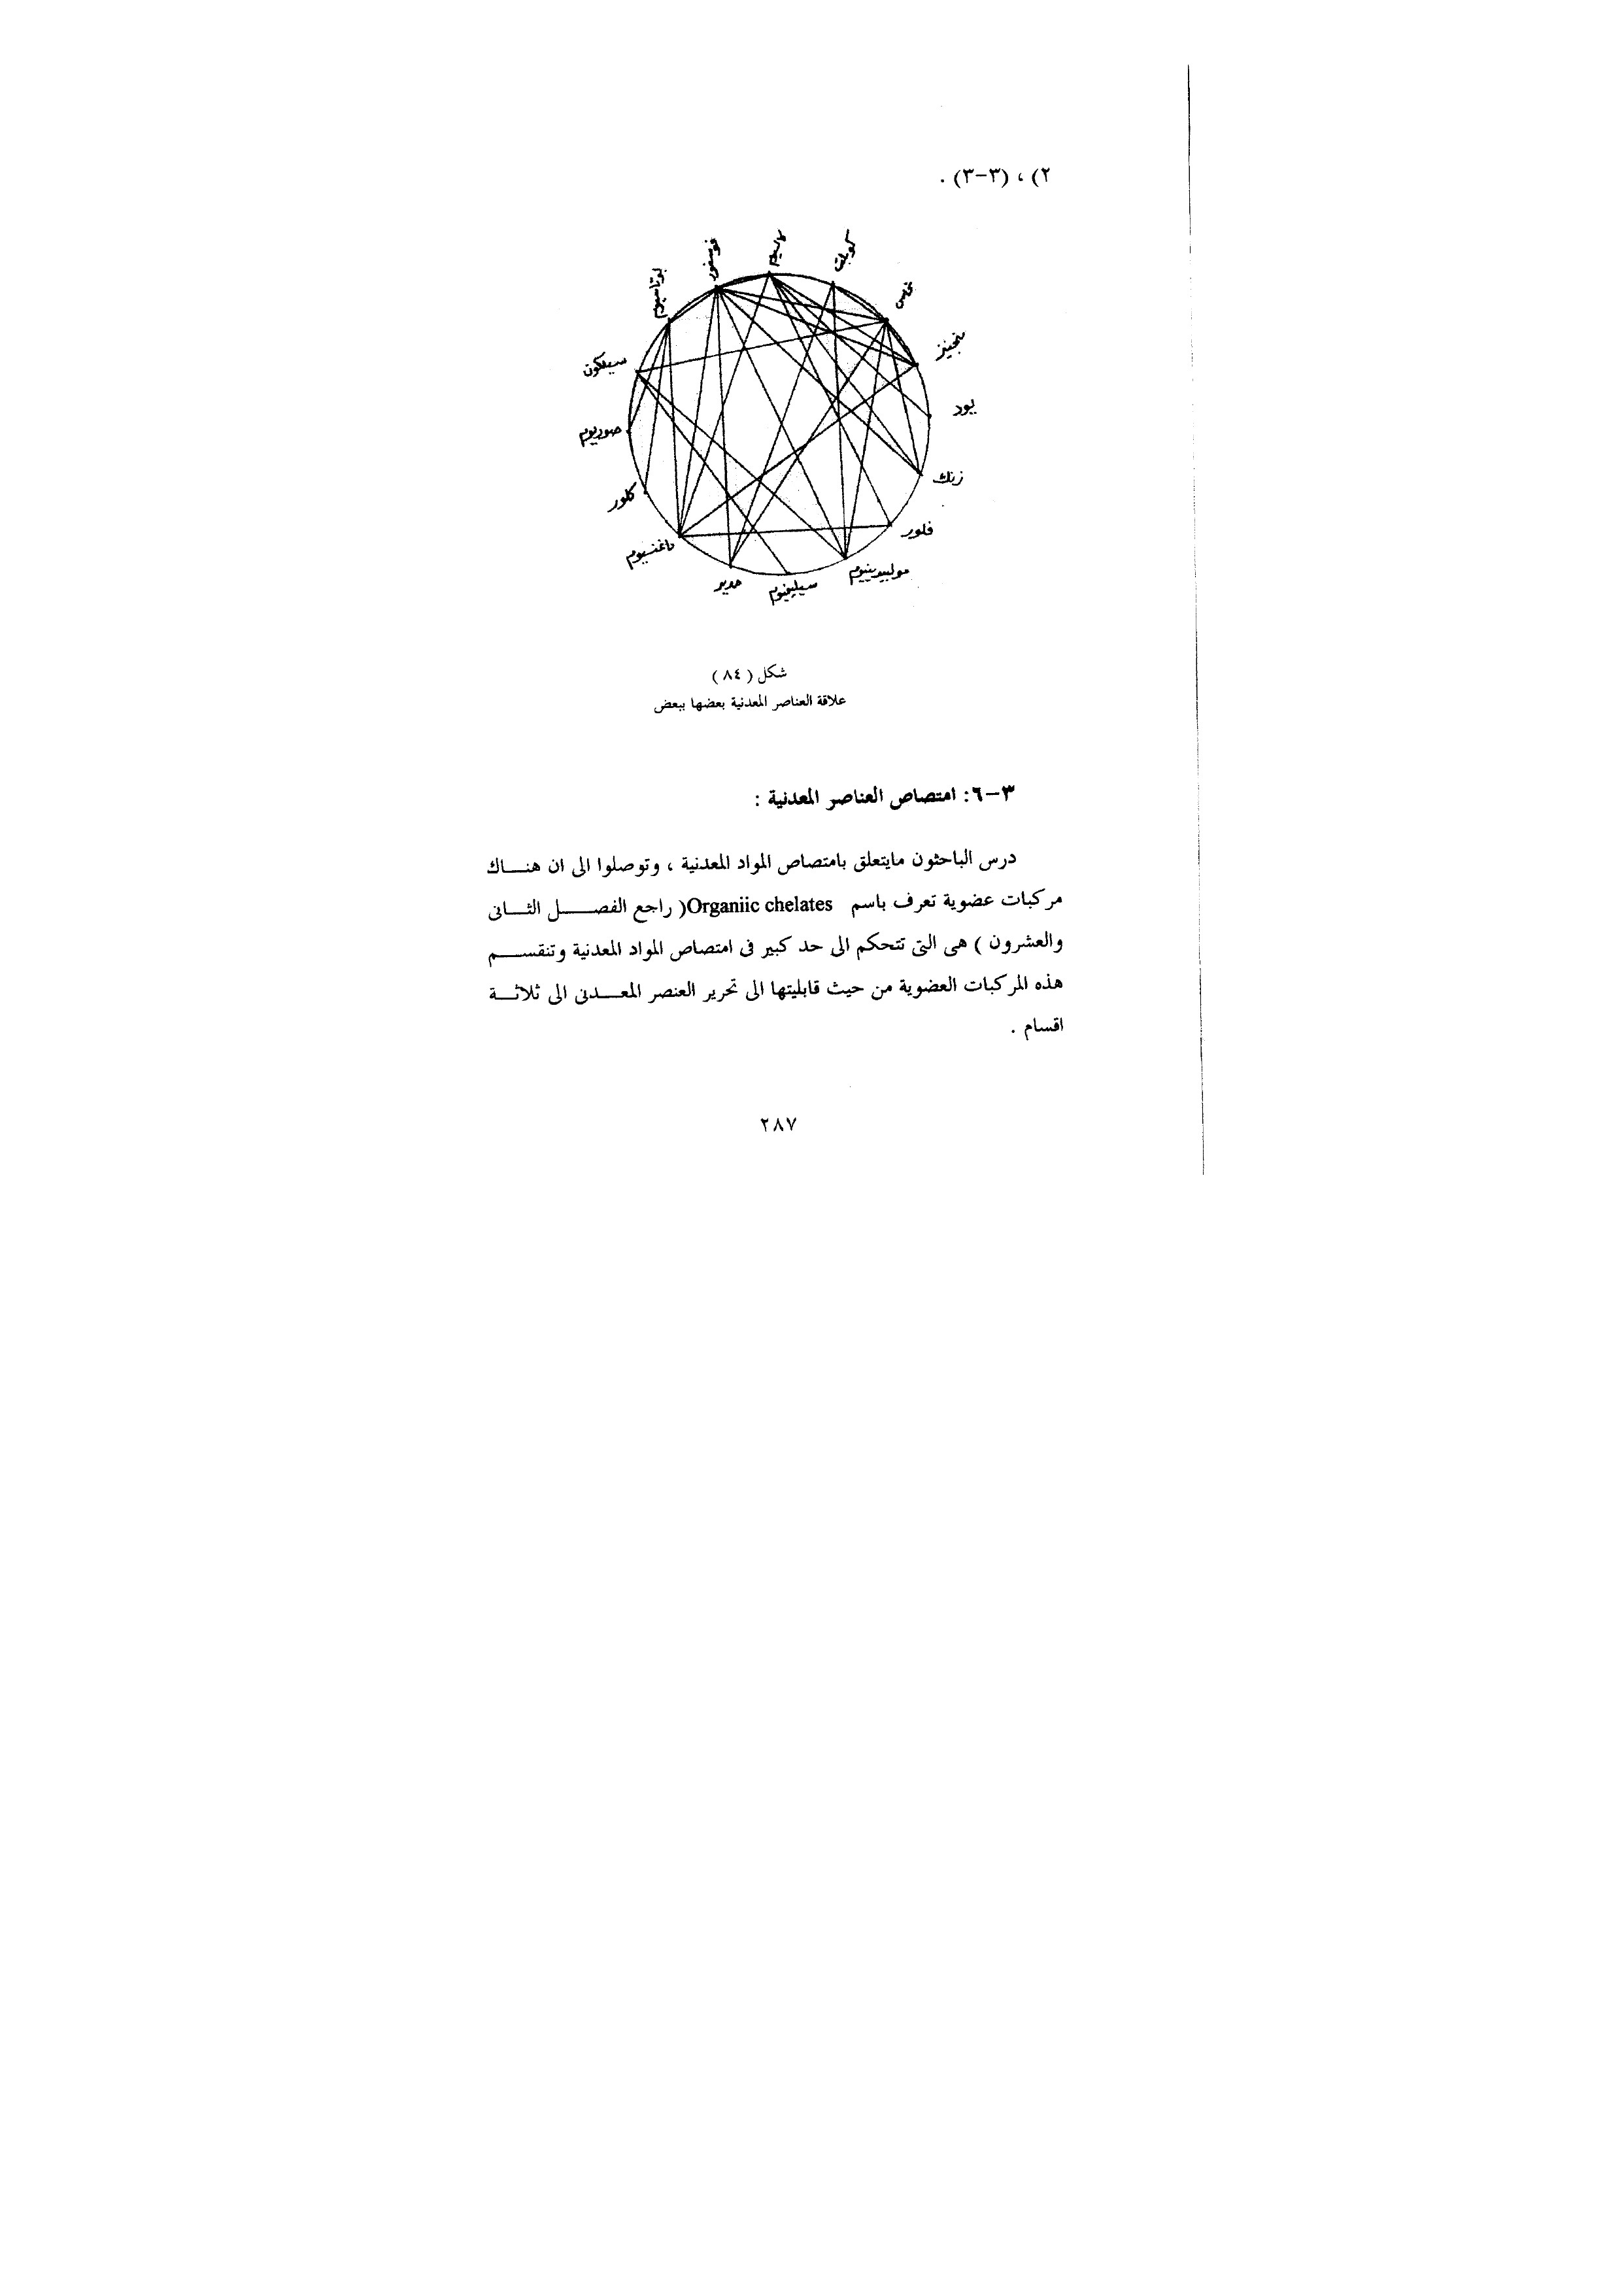 ٢) ، (٣-٣) .
كوبلت
كالسيوم
فوسفور
نحاس
بوتاسيوم
منجنيز
سيلكون
يود
صوديوم
زنك
كلور
فلور
ماغنسيوم
موليبدينيوم
سيلينيوم
حديد
شكل ( ٨٤ )
علاقة العناصر المعدنية بعضها ببعض
٣-٦: امتصاص العناصر المعدنية :
درس الباحثون مايتعلق بامتصاص المواد المعدنية ، وتوصلوا الى ان هنـــاك
مركبات عضوية تعرف باسم Organiic chelates( راجع الفصـــــل الثـــانى
والعشرون ) هى التى تتحكم الى حد كبير فى امتصاص المواد المعدنية وتنقســــم
هذه المركبات العضوية من حيث قابليتها الى تحرير العنصر المعــــدنى الى ثلاثـــة
اقسام .
٢٨٧